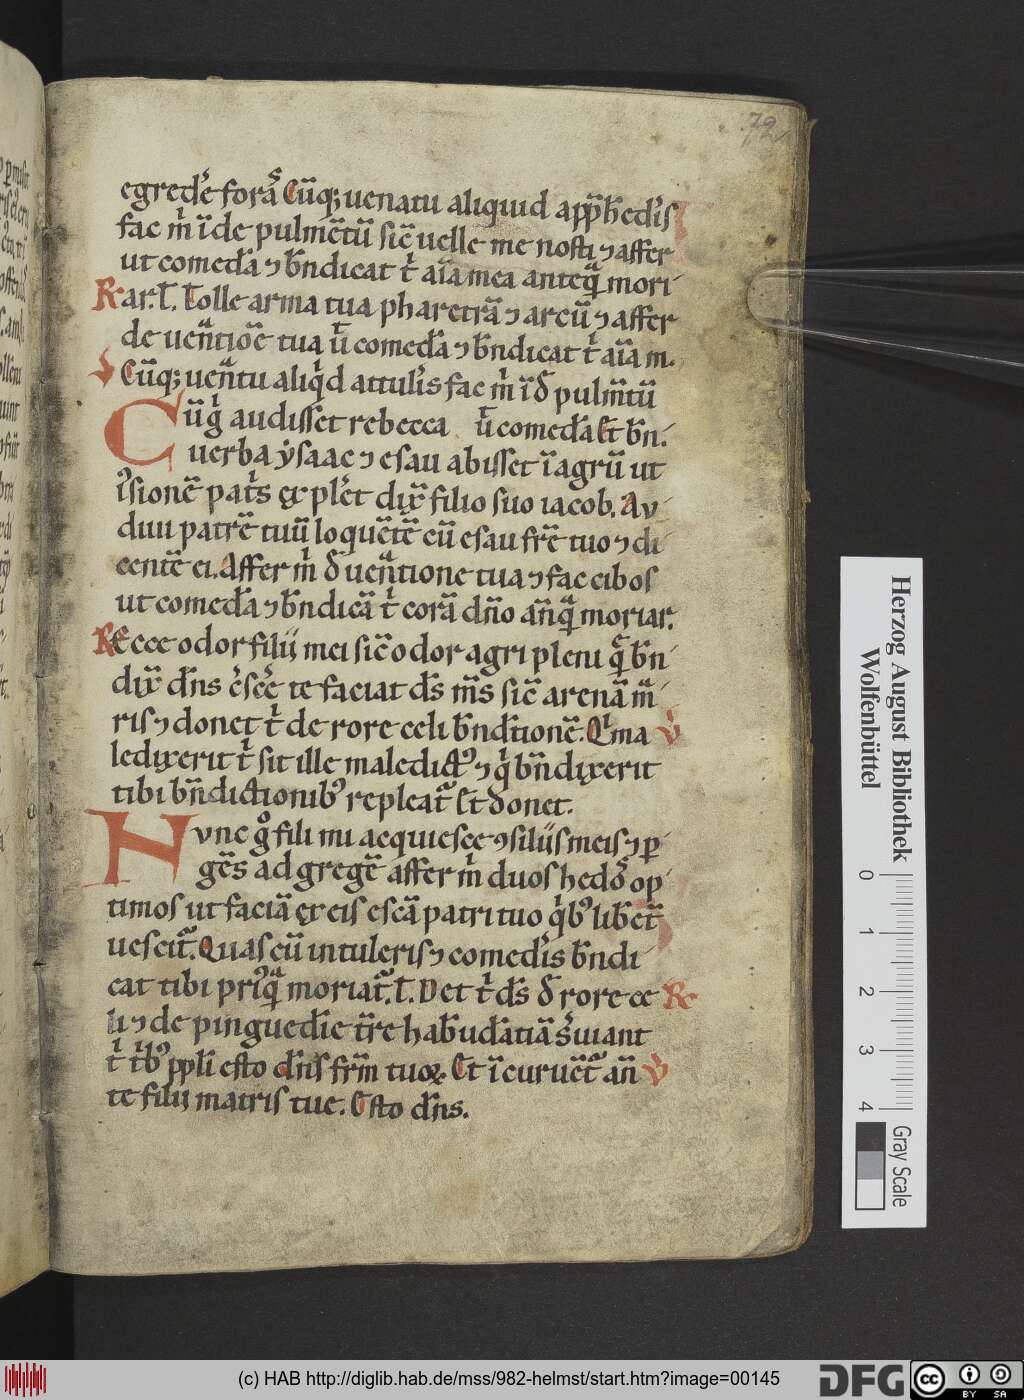 72
egredere forā Cūq; uenatu aliquid app̄hēdis
fac m̄ īde pulmētū sic̄ uelle me nosti ⁊ affer
ut comedā ⁊ bn̄dicat t̄ aīa mea anteq̄ mori
R ar. t̄. Tolle arma tua pharetrā ⁊ arcū ⁊ affer
de uen̄tiōe tua ū comedā ⁊ bn̄dicat t̄ aīa m.
V Cūq; uen̄tu aliqd attulis fac m̄ īd pulm̄tū
Cūq audisset rebecca ū comedā Et bn̄.
uerba ẏsaac ⁊ esau abisset ī agrū ut
iusionē pat̄s explet dix̄ filio suo iacob. Au
diui patrē tuū loquētē cū esau fr̄e tuo ⁊ di
centē ei. Affer m̄ d uen̄tione tua ⁊ fac cibos
ut comedā ⁊ bn̄dicā t̄ corā dn̄o an̄q̄ moriar.
R Ecce odor filij mei sic̄ odor agri pleni q̄ bn̄
dix̄ dn̄s cr̄sc̄e te faciat ds̄ m̄s sic̄ arenā m̄
ris ⁊ donet t̄ de rore celi bn̄dc̄tionē. Qi ma V
ledixerit t̄ sit ille maledictꝰ ⁊ q̄ bn̄dixerit
tibi bn̄dictionibꝰ repleat̄ Et donet.
Nunc gͦ fili mi acquiesce ꝯsilijs meis ⁊ p
gēs ad gregē affer m̄ duos hedoˢ op
timos ut faciā ex eis escā patri tuo qbꝰ libet̄
uescit̄. Quas cū intuleris ⁊ comedis bn̄di
cat tibi priꝰq̄ moriat̄. t̄. Det t̄ ds̄ d rore ce R
li ⁊ de pinguedīe tr̄e habudātiā s̄uiant
t̄ t̄bꝰ ppli esto dn̄s fr̄m tuoꝝ Et īcuruēt̄ an̄ V
te filij matris tue. Esto dn̄s.
Herzog August Bibliothek
Wolfenbüttel
0 1 2 3 4
Gray Scale
(c) HAB http://diglib.hab.de/mss/982-helmst/start.htm?image=00145
DFG
cc BY SA